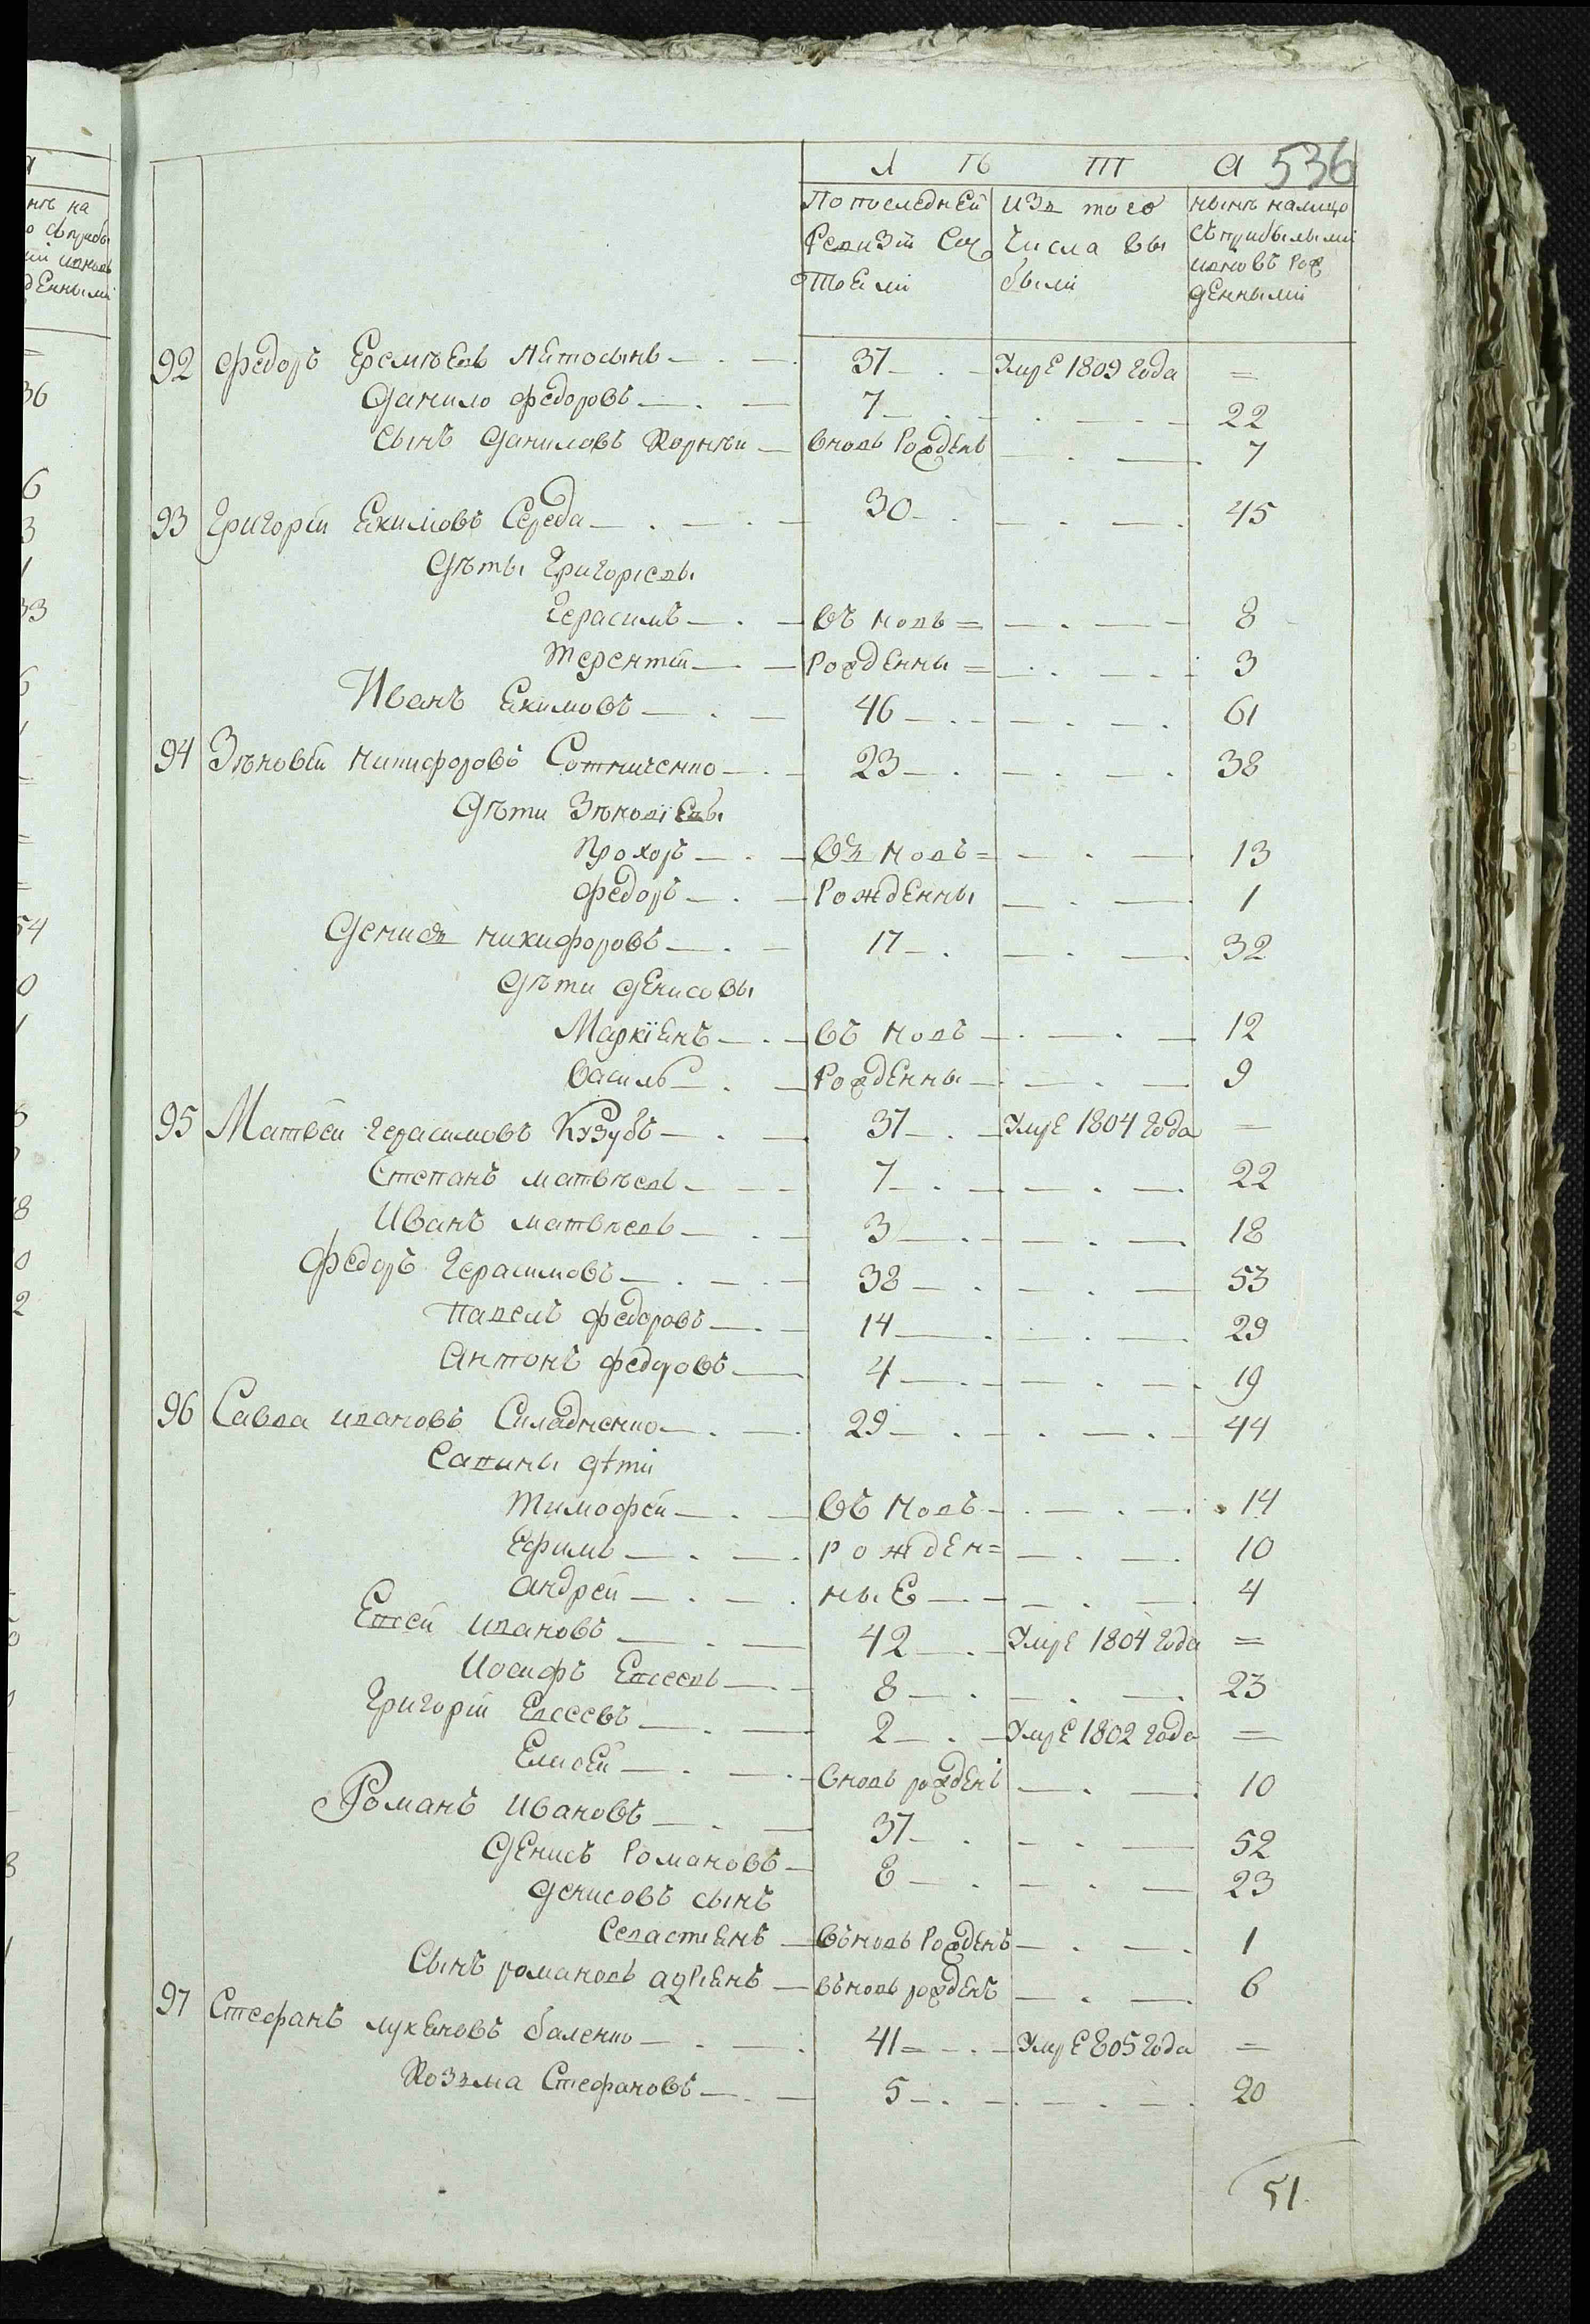 Л Ѣ Т А 536
По последней Изъ того нынѣ налицо
Ревизіи Сос числа вы съ прибылыми
тояли были и вновь рож
денными
92 Федоръ Еремѣевъ 37 Умре 1809 года =
Данило Федоровъ 7 22
Сынъ Даниловъ Корнѣи вновь Рожденъ 7
93 Григорій Екимовъ Середа 30 45
Дѣты Григоріевы
Герасимъ въ новъ = 8
Терентій Рожденны = 3
Иванъ Екимовъ 46 61
94 Зѣновій Никифоровъ Сотниченко 23 38
Дѣти Зѣновіевы
Прохоръ въ новъ = 13
Федоръ Рожденны 1
Денисъ Никифоровъ 17 32
Дѣти Денисовы
Маркіенъ въ новъ 12
Василь Рожденны 9
95 Матвей Герасимовъ Кузубъ 37 Умре 1804 года =
Степанъ Матвѣевъ 7 22
Иванъ Матвѣевъ 3 18
Федоръ Герасимовъ 38 53
Павелъ Федоровъ 14 29
Антонъ Федоровъ 4 19
96 Савва Ивановъ 29 44
Савины дѣти
Тимофей въ новъ 14
Ефимъ рожден= 10
Андрей ные 4
Евсей Ивановъ 42 Умре 1804 года =
Иосифъ Евсеевъ 8 23
Григорій Евсеевъ 2 Умре 1802 года =
Елисей вновь рожденъ 10
Романъ Ивановъ 37 52
Денисъ Романовъ 8 23
Денисовъ сынъ
Севастиенъ въновь Рожденъ 1
Сынъ романовъ адриенъ въновь рожденъ 6
97 Стефанъ Лукеновъ баленко 41 = Умре 805 года =
Козъма Стефановъ 5 20
51.